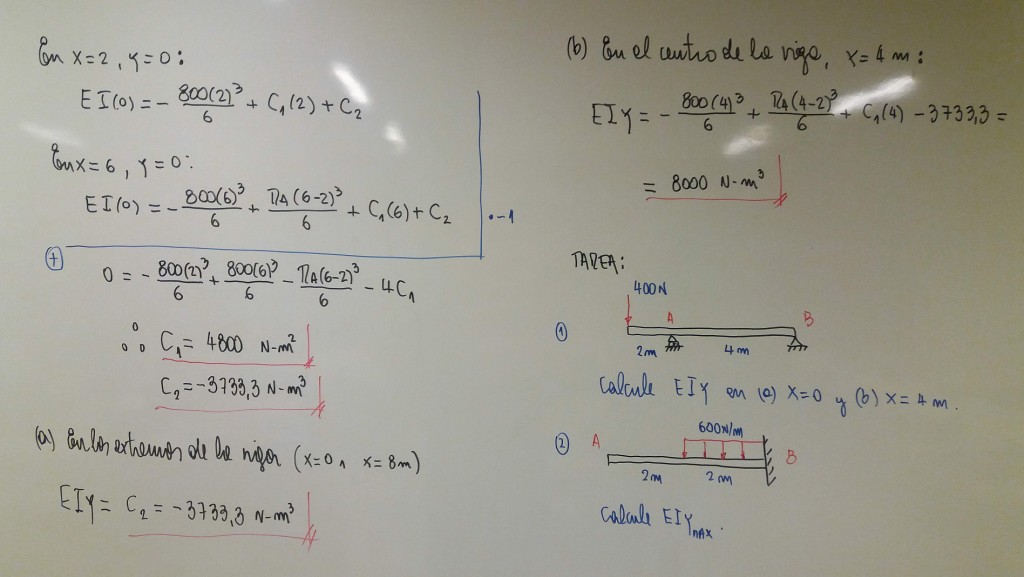 En x=2, y=0:
EI(0) = - 800(2)³/6 + C₁(2) + C₂
En x=6, y=0:
EI(0) = - 800(6)³/6 + RA(6-2)³/6 + C₁(6) + C₂
·-1
+
0 = - 800(2)³/6 + 800(6)³/6 - RA(6-2)³/6 - 4C₁
∴ C₁ = 4800 N-m²
C₂ = -3733,3 N-m³
(a) En los extremos de la viga (x=0, x=8m)
EIy = C₂ = -3733,3 N-m³
(b) En el centro de la viga, x=4 m:
EIy = - 800(4)³/6 + RA(4-2)³/6 + C₁(4) - 3733,3 =
= 8000 N-m³
TAREA:
400N
1
A
B
2m
4m
Calcule EIy en (a) x=0 y (b) x=4 m.
600N/m
2
A
B
2m
2m
Calcule EIyMAX.